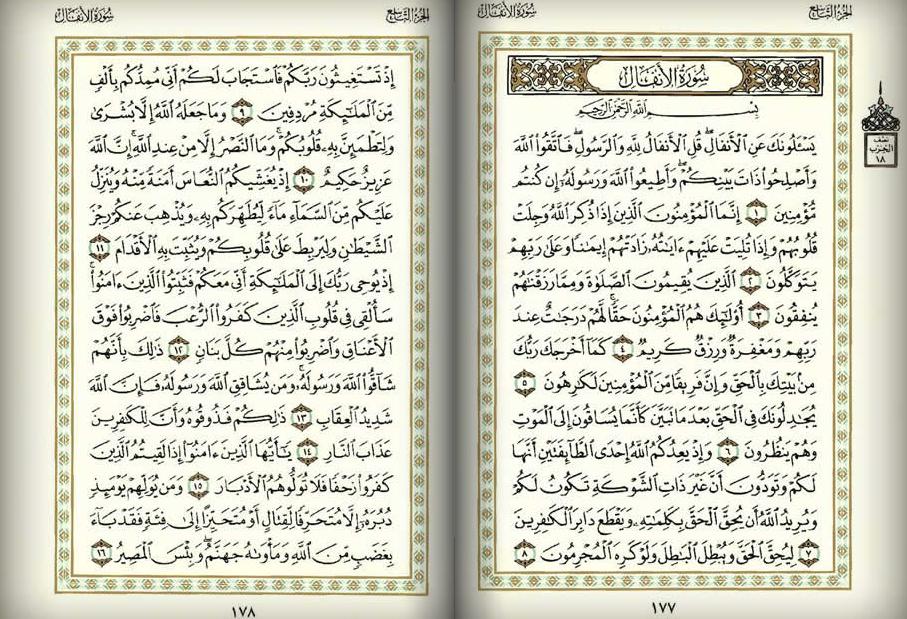 الجزء التاسع
سورة الأنفال
سورة الأنفال
بسم الله الرحمن الرحيم
يَسْـَٔلُونَكَ عَنِ ٱلْأَنفَالِ ۖ قُلِ ٱلْأَنفَالُ لِلَّهِ وَٱلرَّسُولِ ۖ فَٱتَّقُوا۟ ٱللَّهَ
وَأَصْلِحُوا۟ ذَاتَ بَيْنِكُمْ ۖ وَأَطِيعُوا۟ ٱللَّهَ وَرَسُولَهُۥٓ إِن كُنتُم
مُّؤْمِنِينَ ١ إِنَّمَا ٱلْمُؤْمِنُونَ ٱلَّذِينَ إِذَا ذُكِرَ ٱللَّهُ وَجِلَتْ
قُلُوبُهُمْ وَإِذَا تُلِيَتْ عَلَيْهِمْ ءَايَـٰتُهُۥ زَادَتْهُمْ إِيمَـٰنًا وَعَلَىٰ رَبِّهِمْ
يَتَوَكَّلُونَ ٢ ٱلَّذِينَ يُقِيمُونَ ٱلصَّلَوٰةَ وَمِمَّا رَزَقْنَـٰهُمْ
يُنفِقُونَ ٣ أُو۟لَـٰٓئِكَ هُمُ ٱلْمُؤْمِنُونَ حَقًّا ۚ لَّهُمْ دَرَجَـٰتٌ عِندَ
رَبِّهِمْ وَمَغْفِرَةٌ وَرِزْقٌ كَرِيمٌ ٤ كَمَآ أَخْرَجَكَ رَبُّكَ
مِنۢ بَيْتِكَ بِٱلْحَقِّ وَإِنَّ فَرِيقًا مِّنَ ٱلْمُؤْمِنِينَ لَكَـٰرِهُونَ ٥
يُجَـٰدِلُونَكَ فِى ٱلْحَقِّ بَعْدَ مَا تَبَيَّنَ كَأَنَّمَا يُسَاقُونَ إِلَى ٱلْمَوْتِ
وَهُمْ يَنظُرُونَ ٦ وَإِذْ يَعِدُكُمُ ٱللَّهُ إِحْدَى ٱلطَّآئِفَتَيْنِ أَنَّهَا
لَكُمْ وَتَوَدُّونَ أَنَّ غَيْرَ ذَاتِ ٱلشَّوْكَةِ تَكُونُ لَكُمْ
وَيُرِيدُ ٱللَّهُ أَن يُحِقَّ ٱلْحَقَّ بِكَلِمَـٰتِهِۦ وَيَقْطَعَ دَابِرَ ٱلْكَـٰفِرِينَ
٧ لِيُحِقَّ ٱلْحَقَّ وَيُبْطِلَ ٱلْبَـٰطِلَ وَلَوْ كَرِهَ ٱلْمُجْرِمُونَ ٨
نصف
الحزب
١٨
١٧٧
الجزء التاسع
سورة الأنفال
إِذْ تَسْتَغِيثُونَ رَبَّكُمْ فَٱسْتَجَابَ لَكُمْ أَنِّى مُمِدُّكُم بِأَلْفٍ
مِّنَ ٱلْمَلَـٰٓئِكَةِ مُرْدِفِينَ ٩ وَمَا جَعَلَهُ ٱللَّهُ إِلَّا بُشْرَىٰ
وَلِتَطْمَئِنَّ بِهِۦ قُلُوبُكُمْ ۚ وَمَا ٱلنَّصْرُ إِلَّا مِنْ عِندِ ٱللَّهِ ۚ إِنَّ ٱللَّهَ
عَزِيزٌ حَكِيمٌ ١٠ إِذْ يُغَشِّيكُمُ ٱلنُّعَاسَ أَمَنَةً مِّنْهُ وَيُنَزِّلُ
عَلَيْكُم مِّنَ ٱلسَّمَآءِ مَآءً لِّيُطَهِّرَكُم بِهِۦ وَيُذْهِبَ عَنكُمْ رِجْزَ
ٱلشَّيْطَـٰنِ وَلِيَرْبِطَ عَلَىٰ قُلُوبِكُمْ وَيُثَبِّتَ بِهِ ٱلْأَقْدَامَ ١١
إِذْ يُوحِى رَبُّكَ إِلَى ٱلْمَلَـٰٓئِكَةِ أَنِّى مَعَكُمْ فَثَبِّتُوا۟ ٱلَّذِينَ ءَامَنُوا۟ ۚ
سَأُلْقِى فِى قُلُوبِ ٱلَّذِينَ كَفَرُوا۟ ٱلرُّعْبَ فَٱضْرِبُوا۟ فَوْقَ
ٱلْأَعْنَاقِ وَٱضْرِبُوا۟ مِنْهُمْ كُلَّ بَنَانٍ ١٢ ذَٰلِكَ بِأَنَّهُمْ
شَآقُّوا۟ ٱللَّهَ وَرَسُولَهُۥ ۚ وَمَن يُشَاقِقِ ٱللَّهَ وَرَسُولَهُۥ فَإِنَّ ٱللَّهَ
شَدِيدُ ٱلْعِقَابِ ١٣ ذَٰلِكُمْ فَذُوقُوهُ وَأَنَّ لِلْكَـٰفِرِينَ
عَذَابَ ٱلنَّارِ ١٤ يَـٰٓأَيُّهَا ٱلَّذِينَ ءَامَنُوٓا۟ إِذَا لَقِيتُمُ ٱلَّذِينَ
كَفَرُوا۟ زَحْفًا فَلَا تُوَلُّوهُمُ ٱلْأَدْبَارَ ١٥ وَمَن يُوَلِّهِمْ يَوْمَئِذٍ
دُبُرَهُۥٓ إِلَّا مُتَحَرِّفًا لِّقِتَالٍ أَوْ مُتَحَيِّزًا إِلَىٰ فِئَةٍ فَقَدْ بَآءَ
بِغَضَبٍ مِّنَ ٱللَّهِ وَمَأْوَىٰهُ جَهَنَّمُ ۖ وَبِئْسَ ٱلْمَصِيرُ ١٦
١٧٨